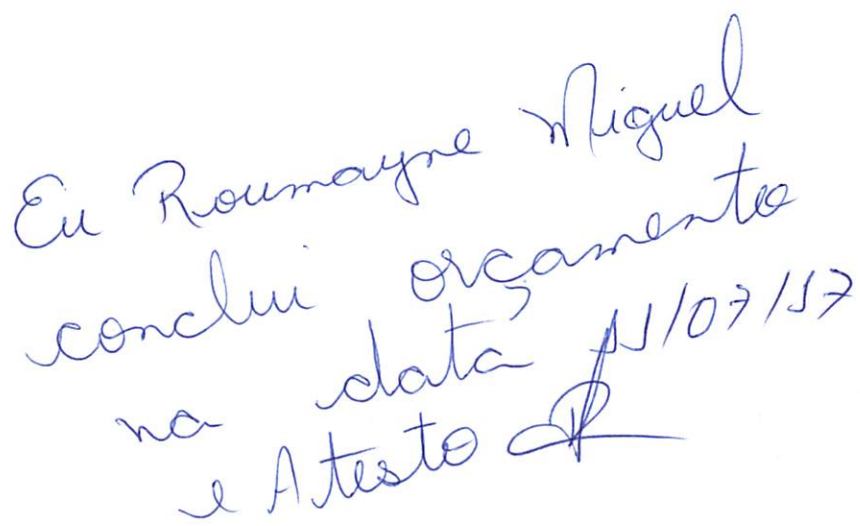 Eu Roumayne Miguel
conclui orçamento
na data 11/07/17
e Atesto